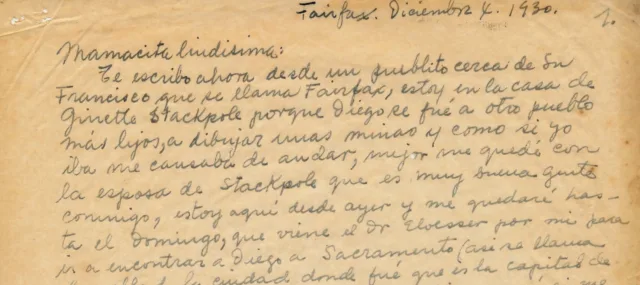 Fairfax. Diciembre 4. 1930.
1.
Mamacita lindisima:
Te escribo ahora desde un pueblito cerca de Sn
Francisco, que se llama Fairfax, estoy en la casa de
Ginette Stackpole porque Diego se fué a otro pueblo
más lejos, a dibujar unas minas y como si yo
iba me cansaba de andar, mejor me quedé con
la esposa de Stackpole que es muy buena gente
conmigo, estoy aquí desde ayer y me quedaré has-
ta el Domingo, que viene el Dr Eloesser por mi para
ir a encontrar a Diego a Sacramento (asi se llama
la ciudad donde fué que es la capital de